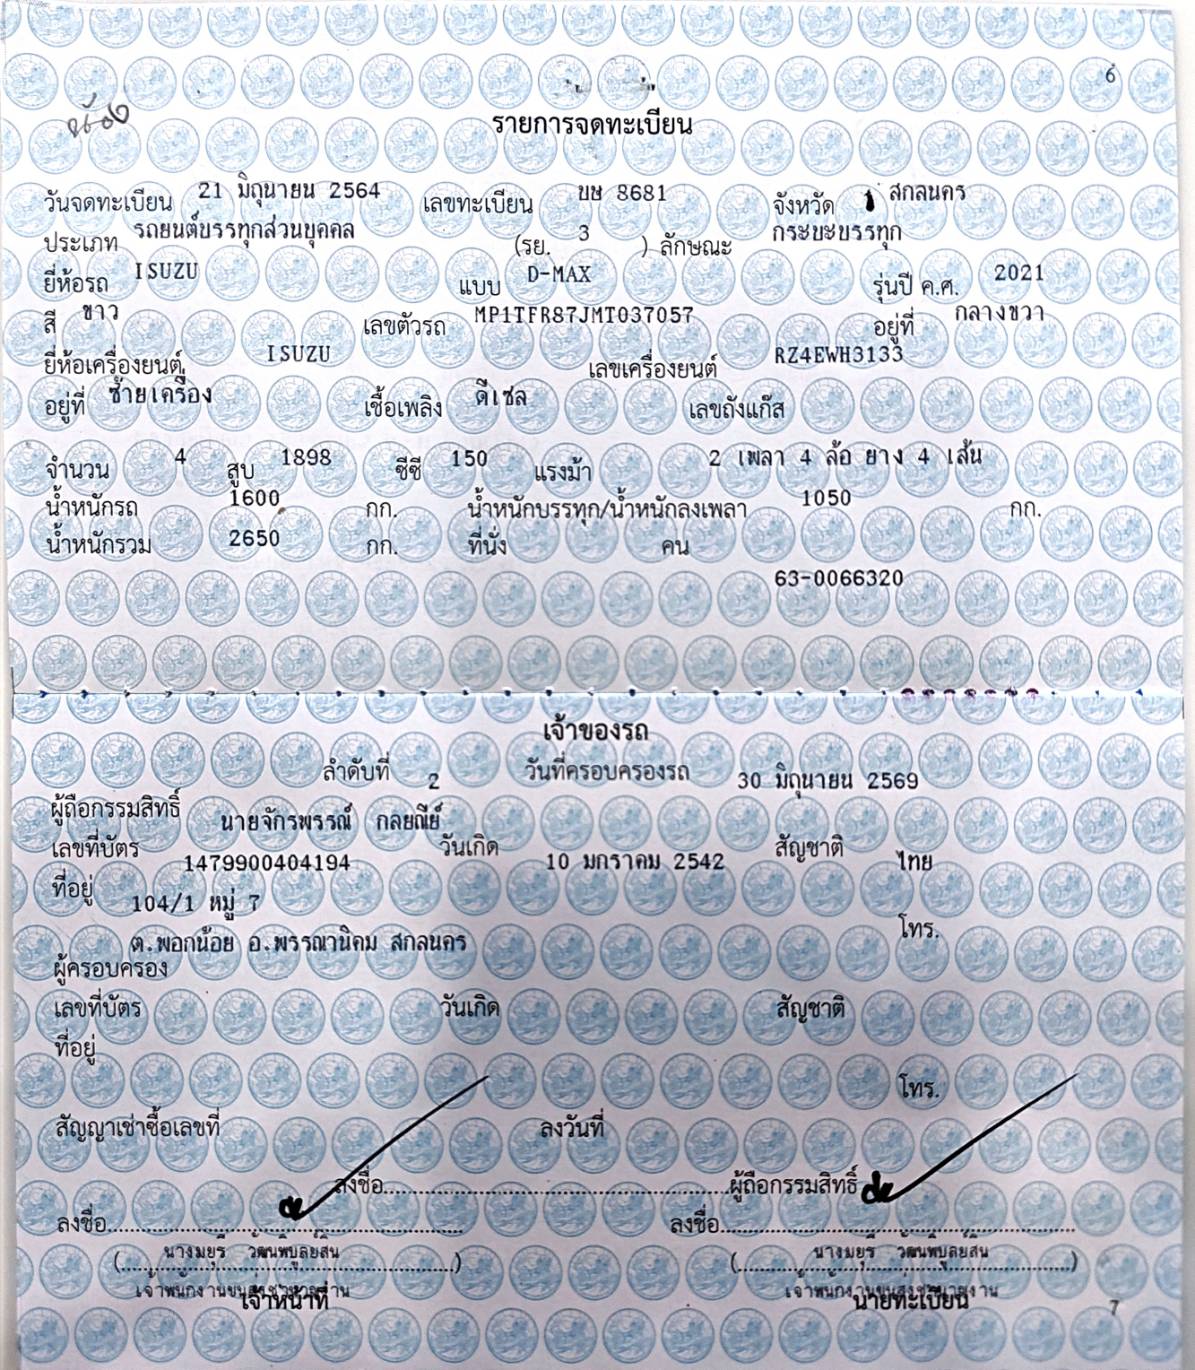 6
น้อง
รายการจดทะเบียน
วันจดทะเบียน 21 มิถุนายน 2564 เลขทะเบียน บษ 8681 จังหวัด สกลนคร
ประเภท รถยนต์บรรทุกส่วนบุคคล (รย. 3 ) ลักษณะ กระบะบรรทุก
ยี่ห้อรถ ISUZU แบบ D-MAX รุ่นปี ค.ศ. 2021
สี ขาว เลขตัวรถ MP1TFR87JMT037057 อยู่ที่ กลางขวา
ยี่ห้อเครื่องยนต์ ISUZU เลขเครื่องยนต์ RZ4EWH3133
อยู่ที่ ซ้ายเครื่อง เชื้อเพลิง ดีเซล เลขถังแก๊ส
จำนวน 4 สูบ 1898 ซีซี 150 แรงม้า 2 เพลา 4 ล้อ ยาง 4 เส้น
น้ำหนักรถ 1600 กก. น้ำหนักบรรทุก/น้ำหนักลงเพลา 1050 กก.
น้ำหนักรวม 2650 กก. ที่นั่ง คน
63-0066320
เจ้าของรถ
ลำดับที่ 2 วันที่ครอบครองรถ 30 มิถุนายน 2569
ผู้ถือกรรมสิทธิ์ นายจักรพรรณ์ กลยณีย์
เลขที่บัตร 1479900404194 วันเกิด 10 มกราคม 2542 สัญชาติ ไทย
ที่อยู่ 104/1 หมู่ 7
โทร.
ต.พอกน้อย อ.พรรณานิคม สกลนคร
ผู้ครอบครอง
เลขที่บัตร วันเกิด สัญชาติ
ที่อยู่
โทร.
สัญญาเช่าซื้อเลขที่ ลงวันที่
ลงชื่อ....................ผู้ถือกรรมสิทธิ์
ลงชื่อ.................... ลงชื่อ....................
(นางมยุรี วัฒนพิบูลยสิน) (นางมยุรี วัฒนพิบูลยสิน)
เจ้าพนักงานขนส่งชำนาญงาน เจ้าพนักงานขนส่งชำนาญงาน
เจ้าหน้าที่ นายทะเบียน 7